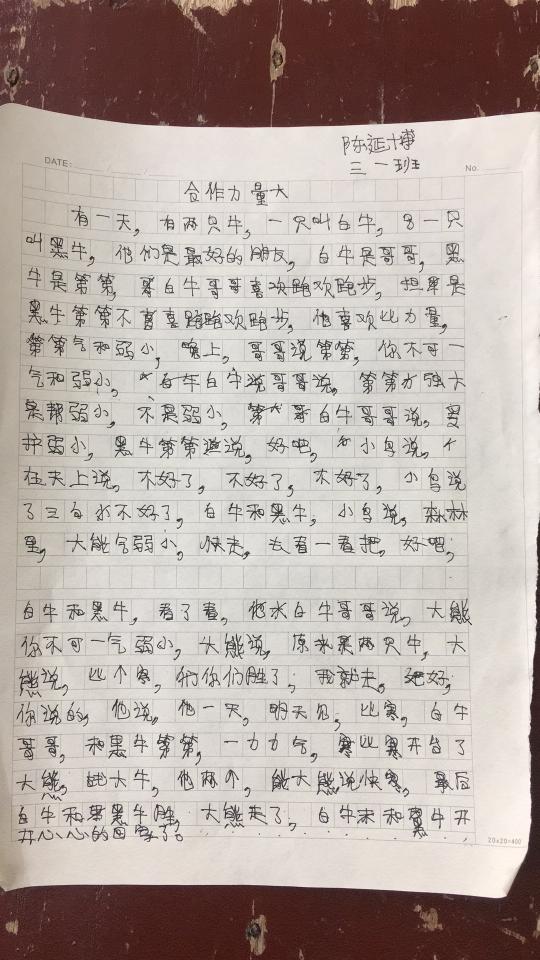 陈延博
三一班
DATE:
No.
合作力量大
有一天，有两只牛，一只叫白牛，另一只
叫黑牛，他们是最好的朋友，白牛是哥哥，黑
牛是第第，白牛哥哥喜欢跑欢跑步，但是
黑牛第第不喜跑欢跑步，他喜欢比力量，
第第气和弱小，晚上，哥哥说第第，你不可一
气和弱小，白牛说哥哥说，第第力强大
是帮弱小，不是弱小，第哥白牛哥哥说，爱
护弱小，黑牛第第说，好吧，小鸟说，个
在天上说，不好了，不好了，不好了，小鸟说
了三句不好了，白牛和黑牛，小鸟说，森林
里，大能气弱小，快走，去看一看把，好吧，
白牛和黑牛，看了看，他水白牛哥哥说，大熊
你不可一气弱小，大熊说，原来是两只牛，大
熊说，比个赛，们你们胜了，我就走，好，
你说的，他说，他一天，明天见，比赛，白牛
哥哥，和黑牛第第，一力力气，比赛开台了
大熊，比大牛，他两个，大熊说快赛，最后
白牛和黑牛胜，大熊走了，白牛和黑牛开
开心心的回家了。
20x20=400